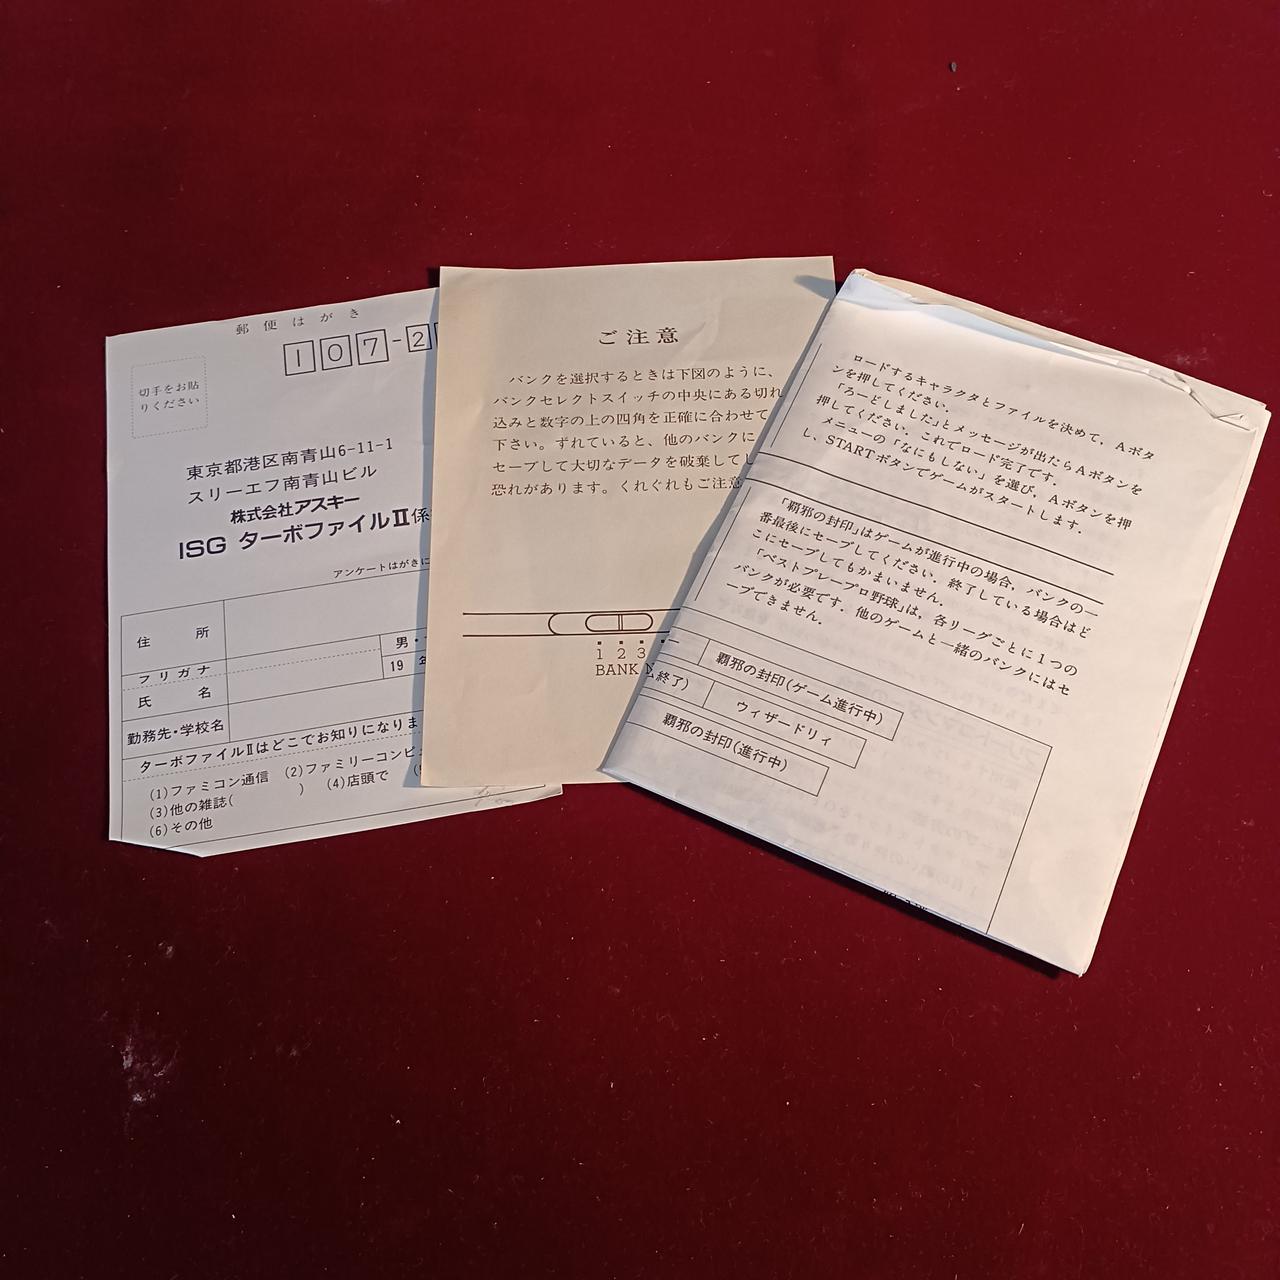 郵便はがき
107-2
切手をお貼
りください
東京都港区南青山6-11-1
スリーエフ南青山ビル
株式会社アスキー
ISG ターボファイルⅡ係
アンケートはがきに
住 所
フリガナ
氏 名
男・
19
勤務先・学校名
ターボファイルⅡはどこでお知りになりま
(1)ファミコン通信 (2)ファミリーコンピュ
(3)他の雑誌( ) (4)店頭で
(6)その他
ご注意
バンクを選択するときは下図のように、
バンクセレクトスイッチの中央にある切れ
込みと数字の上の四角を正確に合わせて
下さい。ずれていると、他のバンクに
セーブして大切なデータを破棄してし
恐れがあります。くれぐれもご注意
1 2 3
BANK N
ロードするキャラクタとファイルを決めて，Aボタ
ンを押してください．
「ろーどしました」とメッセージが出たらAボタンを
押してください．これでロード完了です．
メニューの「なにもしない」を選び，Aボタンを押
し，STARTボタンでゲームがスタートします．
「覇邪の封印」はゲームが進行中の場合，バンクの一
番最後にセーブしてください．終了している場合はど
こにセーブしてもかまいません．
「ベストプレープロ野球」は，各リーグごとに1つの
バンクが必要です．他のゲームと一緒のバンクにはセ
ーブできません．
覇邪の封印(ゲーム進行中)
終了)
ウィザードリィ
覇邪の封印(進行中)